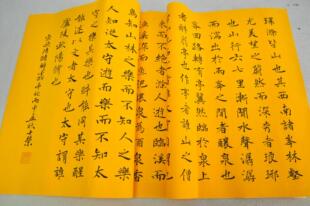 環滁皆山也其西南諸峯林壑
尤美望之蔚然而深秀者琅琊
也山行六七里漸聞水聲潺潺
而瀉出於兩峯之間者釀泉也
峯回路轉有亭翼然臨於泉上
者醉翁亭也作亭者誰山之僧
鳥知山林之樂而不知人之樂
人知從太守遊而樂而不知太
守之樂其樂也醉能同其樂醒
能述以文者太守也太守謂誰
廬陵歐陽修也
宋歐陽修醉翁亭記